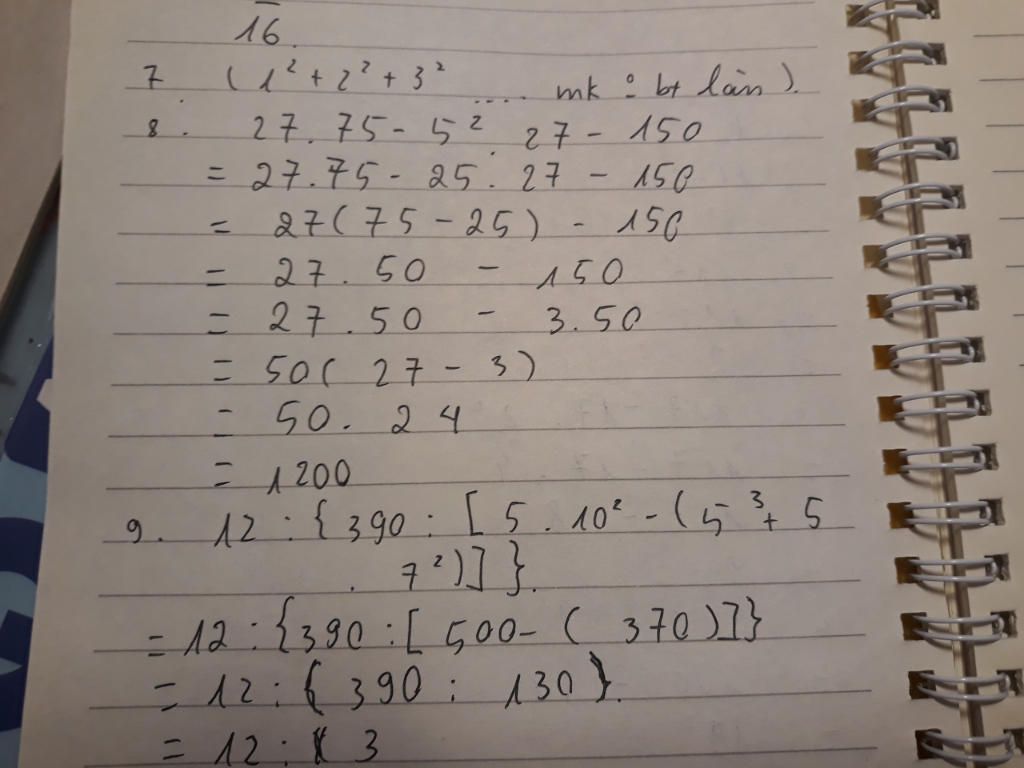 16.
7. (1² + 2² + 3² .... mk : bt làm).
8. 27.75 - 5² . 27 - 150
= 27.75 - 25 . 27 - 150
= 27(75 - 25) - 150
= 27 . 50 - 150
= 27 . 50 - 3.50
= 50( 27 - 3)
= 50. 24
= 1200
9. 12 : { 390 : [ 5 . 10² - ( 5³ + 5
. 7²)] }.
= 12 : { 390 : [ 500 - ( 370 )]}
= 12 : { 390 : 130 }.
= 12 : 3